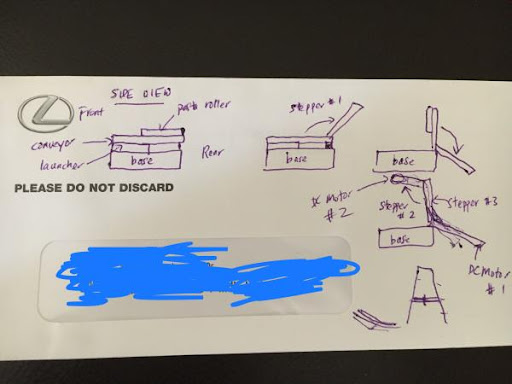 SIDE VIEW
Front
parts roller
conveyor
launcher
base
Rear
PLEASE DO NOT DISCARD
stepper #1
base
base
DC Motor
#2
stepper
#2
stepper #3
base
DC Motor
#1